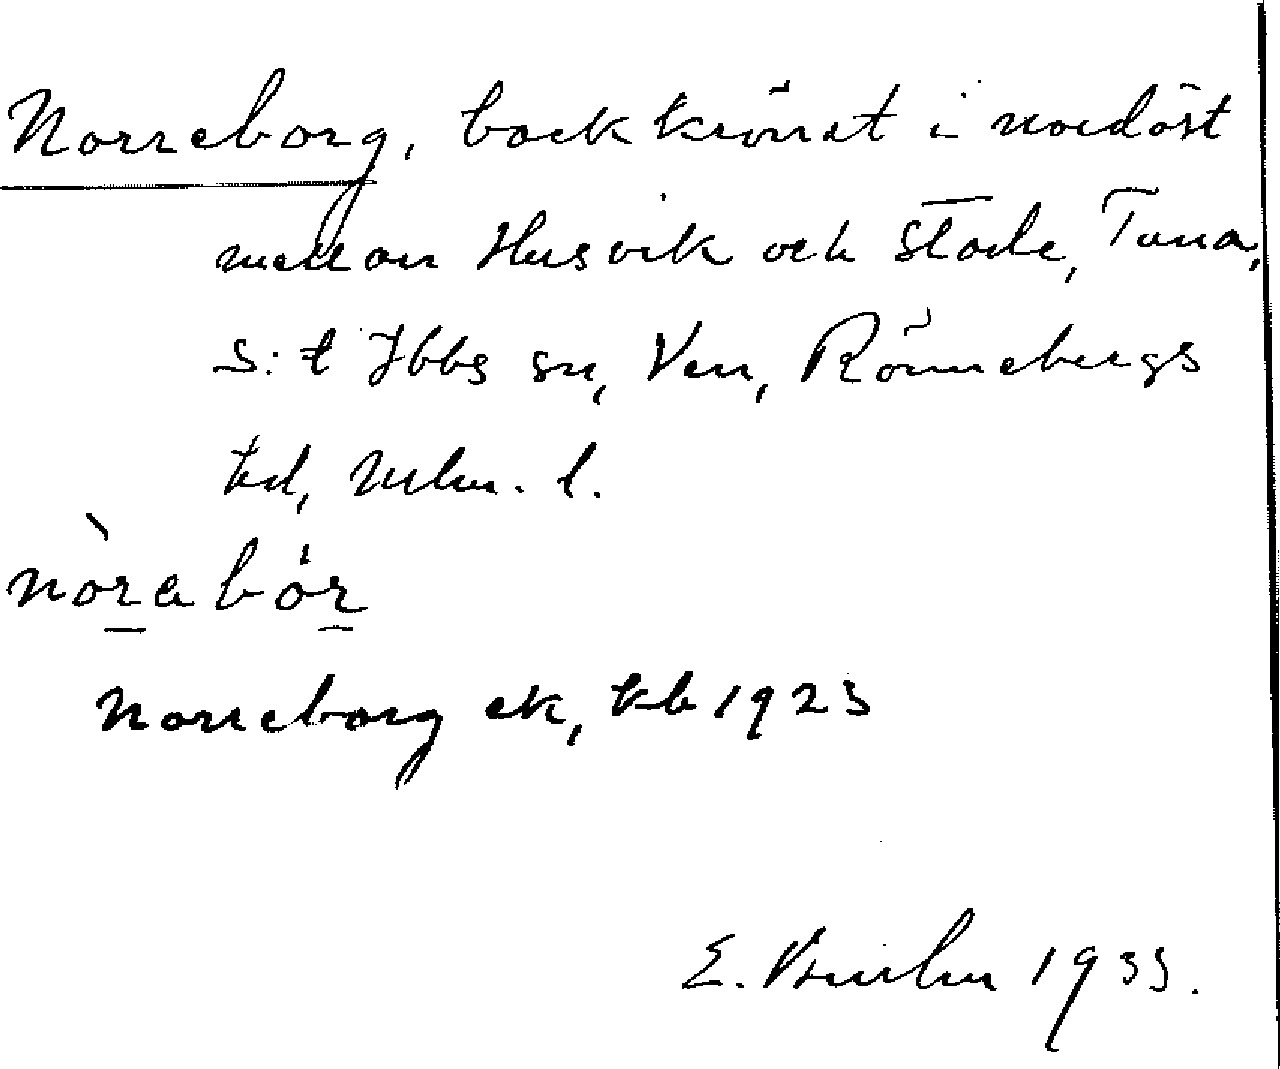 Norreborg, backkrönet i nordöst
mellan Husvik och Stade, Tuna,
S:t Ibbs sn, Ven, Rönnebergs
hd, Mlm. l.
nòra bór
Norreborg ek, kb 1923
E. 1933.